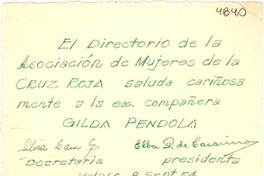 4840
El Directorio de la
Asociación de Mujeres de la
CRUZ ROJA saluda cariñosa
mente a la ex. compañera
GILDA PENDOLA
Elba D. de
Secretaria presidenta
8 Sept 54